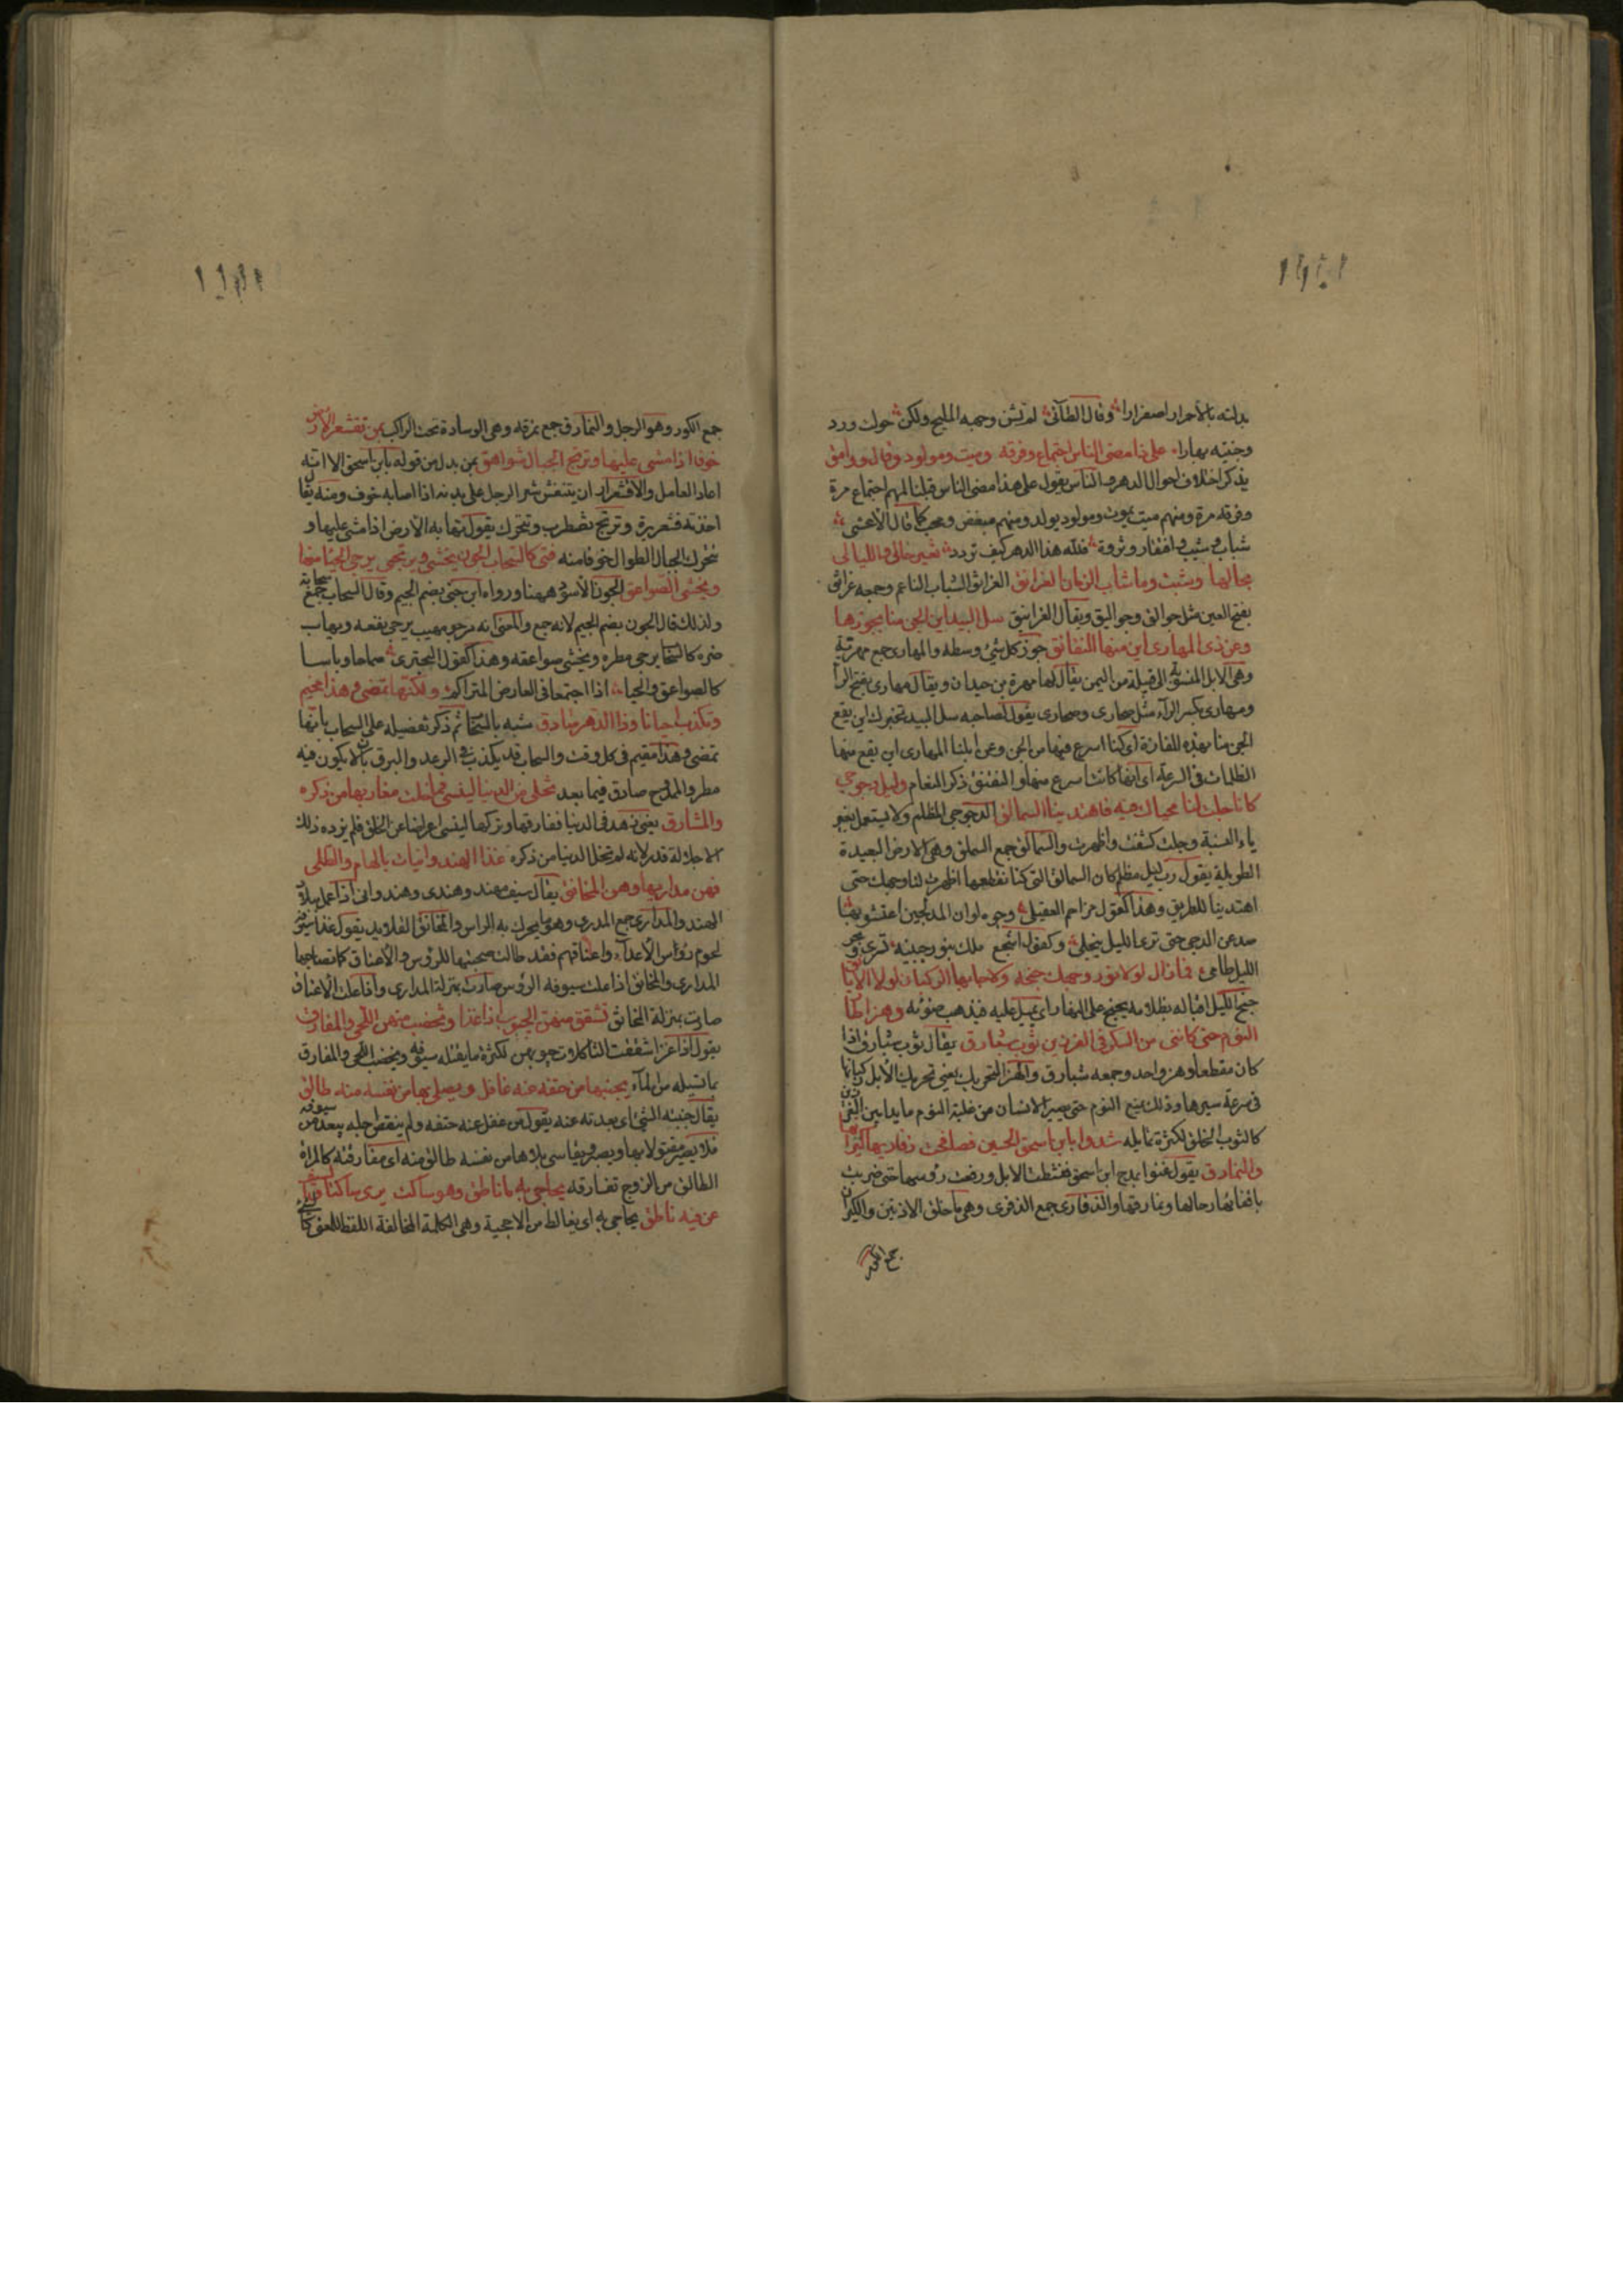 بدلته بالاحمرار اصفرارا وقال الطآئى لم تشن وجهه المليح ولكن حولت ورد
وجنتيه بهارا على ذا مضى الناس اجتماع وفرقة وميت ومولود وقال ووامق
يذكر اختلاف احوال الدهر والناس يقول على هذا مضى الناس قبلنا لهم اجتماع مرة
وفرقة مرة ومنهم ميت يموت ومولود يولد ومنهم مبغض ومحب كما قال الأعشى
شباب وشيب وافتقار وثروة فلله هذا الدهر كيف تردد تغير حالى والليالى
بحالها وشبت وما شاب الزمان الغرانق الغرانق الشباب الناعم وجمعه غرانق
بفتح الغين مثل جوالق وجواليق ويقال الغرانيق سل البيد اين الجن منا بجوزها
وعن ذى المهارى اين منها النقانق جوز كل شئ وسطه والمهارى جمع مهرية
وهى الابل المنسوبة الى قبيلة من اليمن يقال لها مهرة بن حيدان ويقال مهارى بفتح الرا
ومهارى بكسر الرآء مثل صحارى وصحارى يقول لصاحبه سل البيد تخبرك اين يقع
الجن منا بهذه المفازة اى كنا اسرع فيها من الجن وعن ابلنا المهارى اين يقع منها
الظلمات فى السرعة اى انها كانت اسرع منها والنقنق ذكر النعام وليل دجوجى
كانا جلت لنا محياك فيه فاهتدينا السمالق الدجوجى المظلم ولا يستعمل بغير
ياء النسبة وجلت كشفت واظهرت والسمالق جمع السملق وهى الارض البعيدة
الطويلة يقول رب ليل مظلم كان السمالق التى كنا نقطعها اظهرت لنا وجهك حتى
اهتدينا للطريق وهذا كقول مزاحم العقيلى وجوه لو ان المدلجين اعتشوا بها
صدعن الدجى حتى ترى الليل ينجلى وكقول اشجع ملك بنور جبينه نسرى وبحر
الليل طامى فما زال لولا نور وجهك جنحه ولا جابها الركبان لولا الايانق
جنح الليل اقباله بظلامه يجنح على النهار اى يميل عليه فيذهب ضوئه وهز اطار
النوم حتى كاننى من السكر فى الغرزين ثوب شبارق يقال ثوب شبارق اذا
كان مقطعا وهو واحد وجمعه شبارق والهز التحريك يعنى تحريك الأبل ركبانها
فى سرعة سيرها وذلك يمنع النوم حتى يصير الانسان من غلبة النوم مايدا بين الغرزين
كالثوب الخلق لكثرة تمايله شدوا بابن اسحق الحسين فصافحت ذفاريها كيرانها
والنمارق يقول غنوا بمدح ابن اسحق فنشطت الابل ورفعت رؤسها حتى ضربت
باقفائها رحالها ونمارقها والذفارى جمع الذفرى وهى ما خلف الاذنين والكيران
جمع الكور
جمع الكور وهو الرحل والنمارق جمع نمرقة وهى الوسادة تحت الراكب بمن تقشعر الأرض
خوفا اذا مشى عليها وترتج الجبال شواهق بمن بدل من قوله بابن اسحق الا انه
اعاد العامل والاقشعرار ان ينتفش شعر الرجل على بدنه اذا اصابه خوف ومنه يقال
اخذته قشعريرة وترتج تضطرب وتتحرك يقول تهابه الأرض اذا مشى عليها و
تتحرك الجبال الطوال خوفا منه فتى كالسحاب الجون يخشى ويرتجى يرجى الحيا منها
ويخشى الصواعق الجون الأسود ههنا ورواه ابن جنى بضم الجيم وقال السحاب جمع سحابة
ولذلك قال الجون بضم الجيم لانه جمع والمعنى انه مرجو مهيب يرجى نفعه ويهاب
ضره كالسحاب يرجى مطره ويخشى صواعقه وهذا كقول البحترى سماحا وباسا
كالصواعق والحيا اذا اجتمعا فى العارض المتراكم ولكنها تمضى وهذا مخيم
وتكذب احيانا وذا الدهر صادق شبه بالسحاب ثم ذكر تفضيله على السحاب بانها
تمضى وهذا مقيم فى كل وقت والسحاب قد يكذب فى الرعد والبرق بان لا يكون فيه
مطر والممدوح صادق فيما يعد تخلى من الدنيا لينسى فما خلت مغاربها من ذكره
والمشارق يعنى زهد فى الدنيا ففارقها وتركها لينسى اعراضا عن الخلق فلم يزده ذلك
الا جلالة قدر لانه لم تخل الدنيا من ذكره غذا الهندوانيات بالهام والطلى
فهن مداريها وهن المخانق يقال سيف مهند وهندى وهندوانى اذا عمل ببلاد
الهند والمدارى جمع المدرى وهو ما يحك به الراس والمخانق القلايد يقول غذا سيوفه
لحوم رؤس الأعدآء واعناقهم فقد طالت صحبتها للرؤس والأعناق كما تصاحبها
المدارى والمخانق اذا علت سيوفه الرؤس صارت بمنزلة المدارى واذا علت الأعناق
صارت بمنزلة المخانق تشقق منهن الجيوب اذا غزا وتخضب منهن اللحى والمفارق
يقول اذا غزا شققت الثاكلات جيوبهن لكثرة ما يقتله سيوفه ويخضب اللحى والمفارق
بما تسيله من الدمآء يجنبها من حتفه عنه غافل ويصلى بها من نفسه منه طالق
يقال جنبته الشئ اى بعدته عنه يقول من غفل عنه حتفه ولم ينقض اجله يبعد من سيوفه
فلا يصير مقتولا بها ويصير ويقاسى بلاءها من نفسه طالق منه اى مفارقته كالمراة
الطالق من الزوج تفارقه يحاجى به ما ناطق وهو ساكت يرى ساكتا والسيف
عن فيه ناطق يحاجى به اى يغالط من الاحجية وهى الكلمة المخالفة اللفظ للمعنى